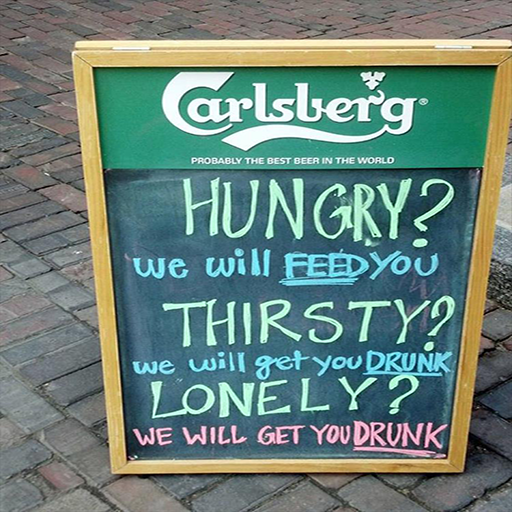 Carlsberg®
PROBABLY THE BEST BEER IN THE WORLD
HUNGRY?
we will FEED YOU
THIRSTY?
we will get you DRUNK
LONELY?
WE WILL GET YOU DRUNK